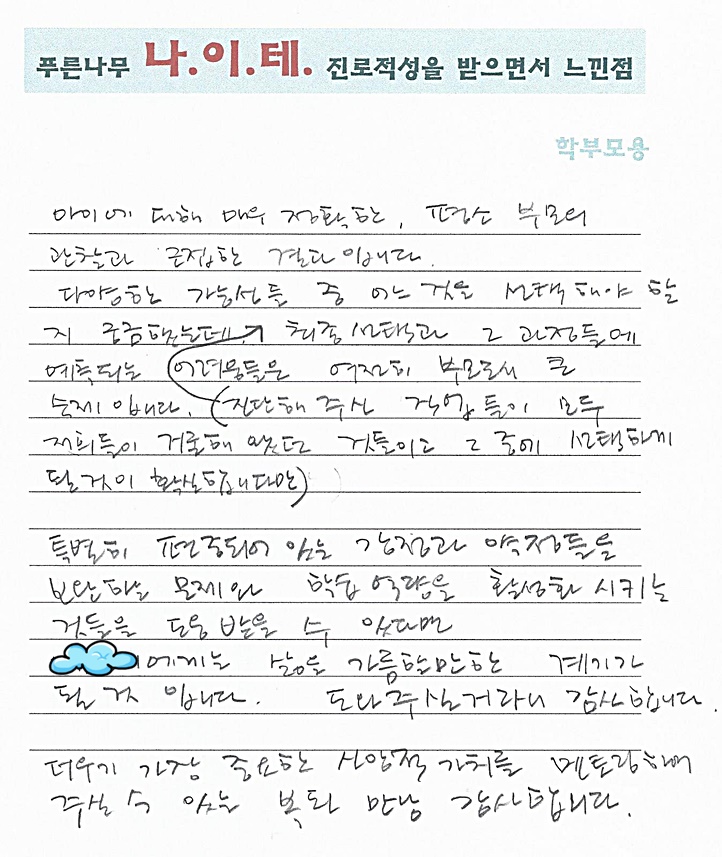 푸른나무 나.이.테. 진로적성을 받으면서 느낀점
학부모용
아이에 대해 매우 정확한, 평소 부모의
관찰과 근접한 결과입니다.
다양한 가능성들 중 어느 것을 선택해야 할
지 궁금했는데, 최종선택과 그 과정들에
예측되는 어려움들은 여전히 부모로서 큰
숙제입니다. (진단해 주신 직업들이 모두
저희들이 거론해 왔던 것들이고 그 중에 선택하게
될 것이 확실합니다만)
특별히 편중되어 있는 강점과 약점들을
보완하는 문제와 학습역량을 활성화 시키는
것들을 도움 받을 수 있다면
에게는 삶을 가름할만한 계기가
될 것 입니다. 도와주실거라니 감사합니다.
더욱기 가장 중요한 신앙적 가치를 멘토링하여
주실 수 있는 복된 만남 감사합니다.